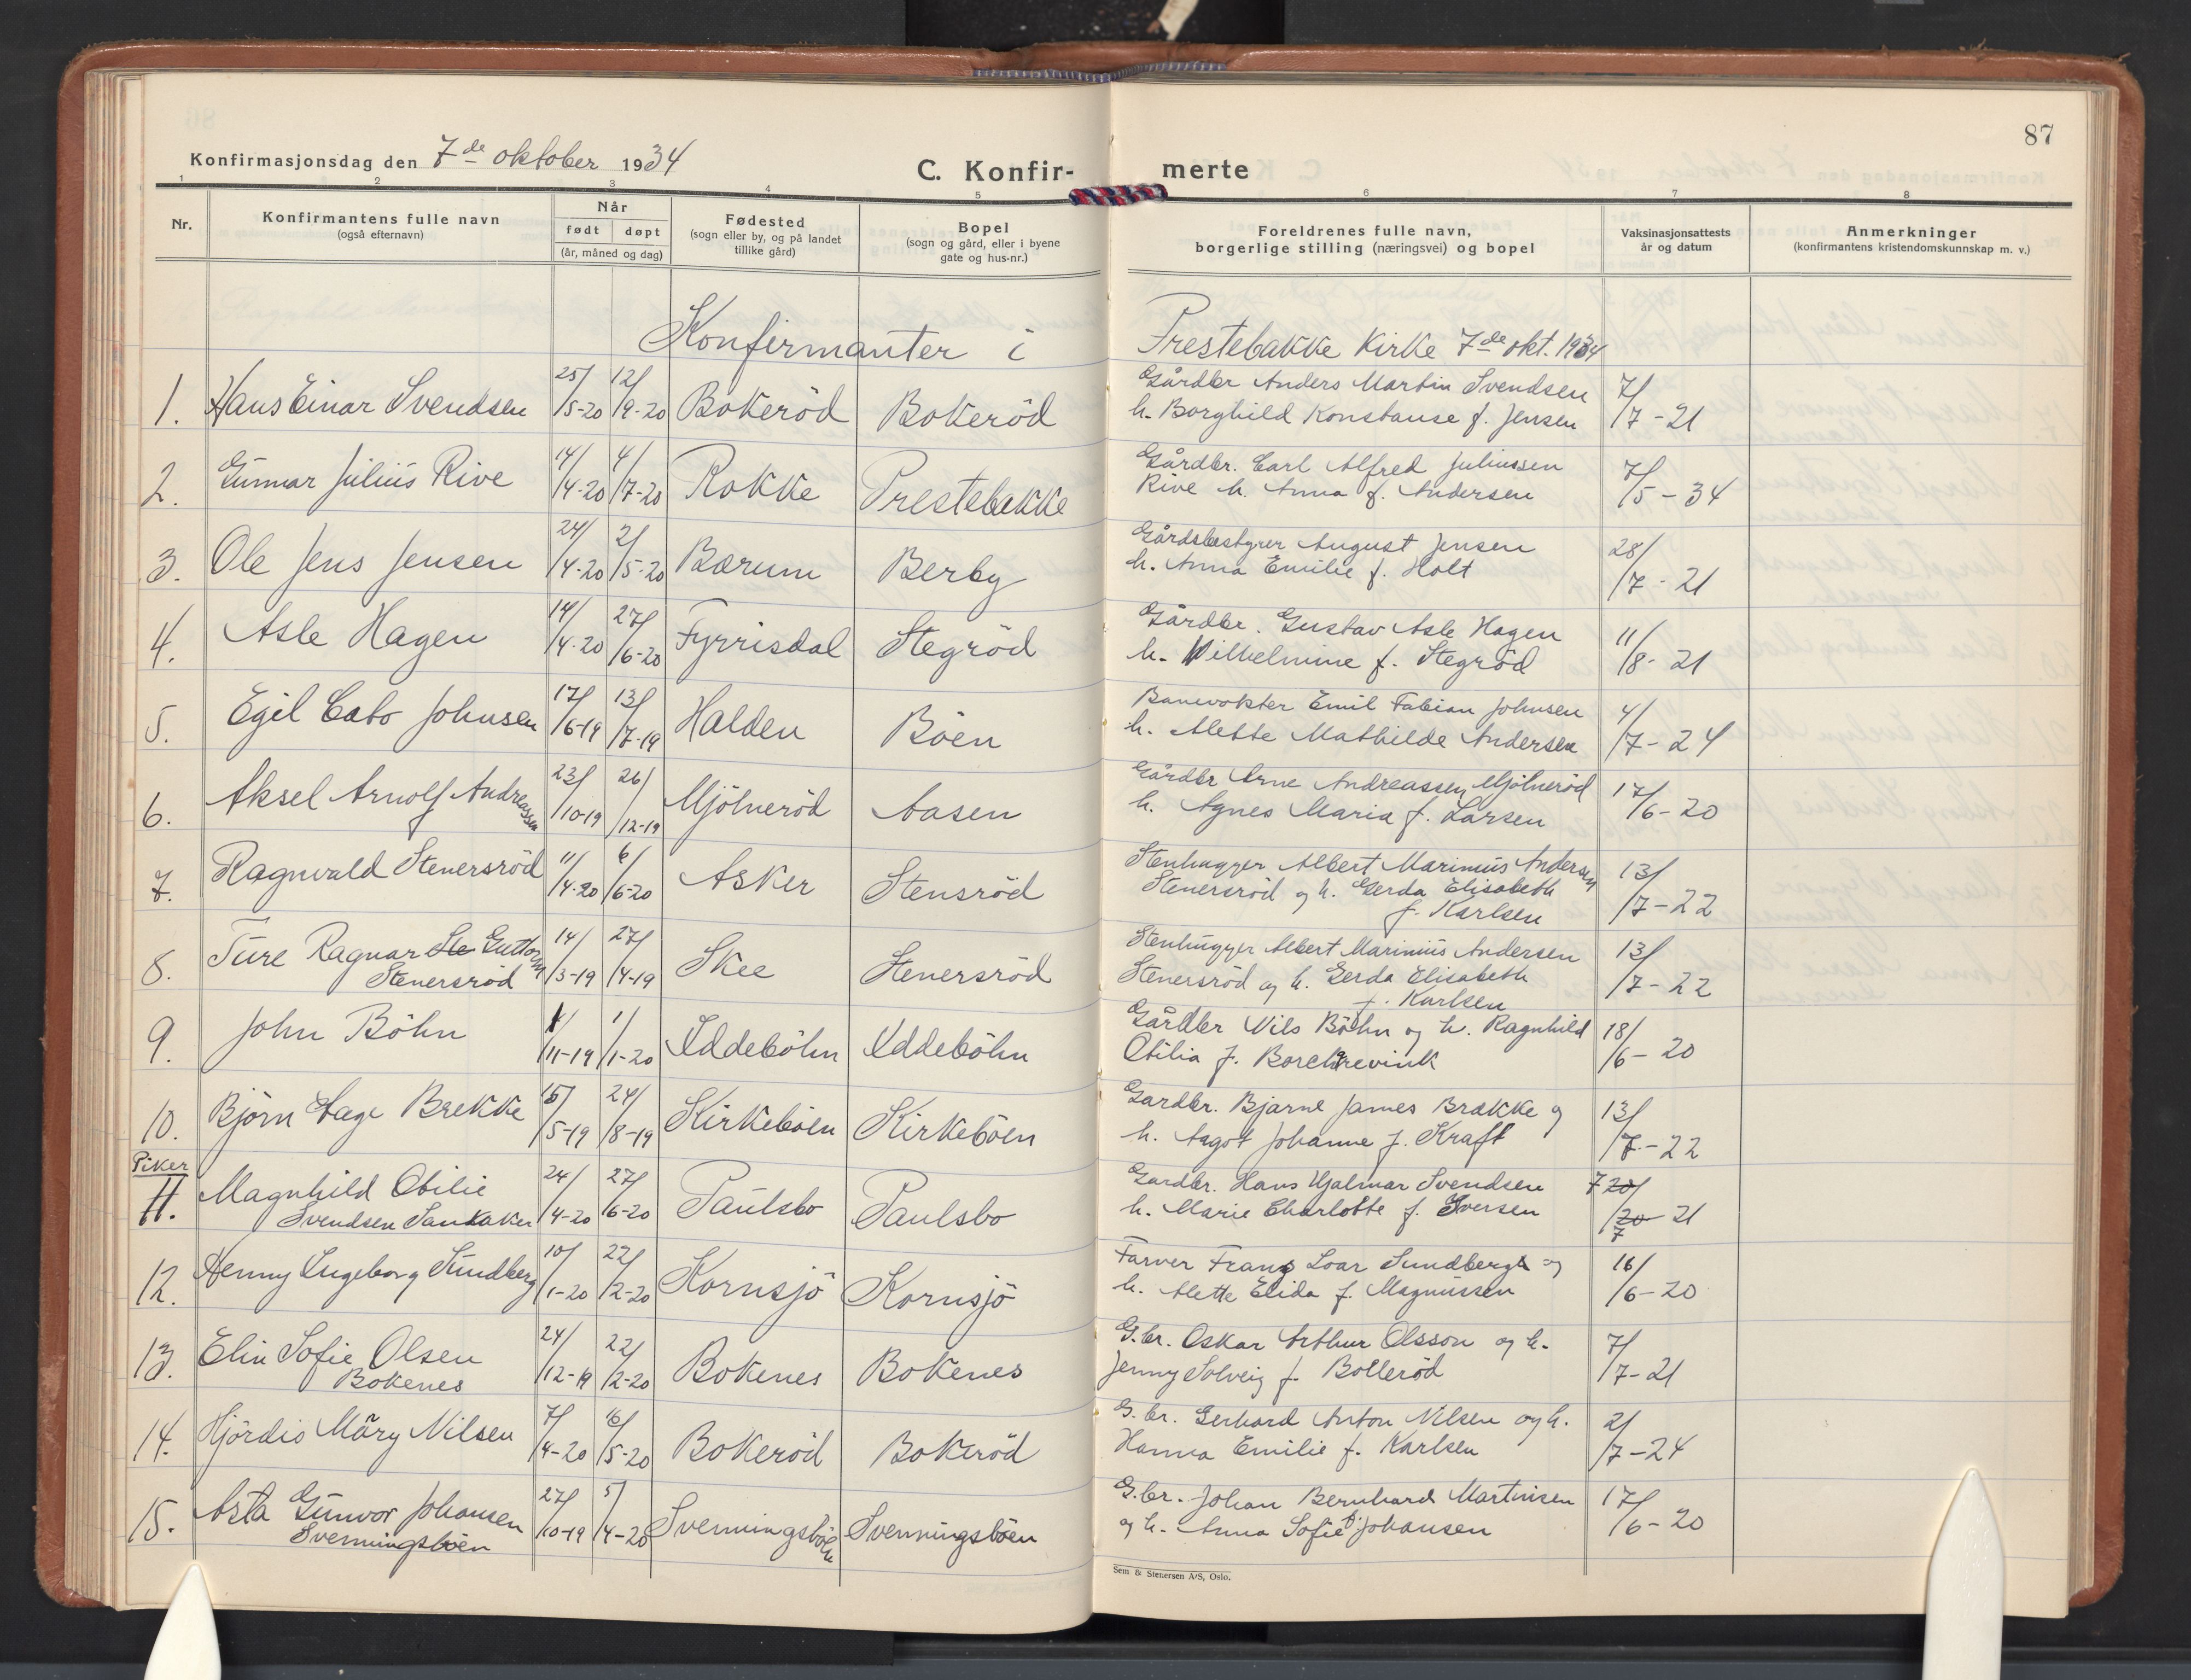 87
Konfirmasjonsdag den 7de oktober 1934
C. Konfir- merte
1 2 3 4 5 6 7 8
Nr.
Konfirmantens fulle navn
(også efternavn)
Når
født døpt
(år, måned og dag)
Fødested
(sogn eller by, og på landet
tillike gård)
Bopel
(sogn og gård, eller i byene
gate og hus-nr.)
Foreldrenes fulle navn,
borgerlige stilling (næringsvei) og bopel
Vaksinasjonsattests
år og datum
Anmerkninger
(konfirmantens kristendomskunnskap m. v.)
Konfirmanter i Prestebakke Kirke 7de okt. 1934
1. Hans Einar Svendsen 25/5-20 12/9-20 Bokeröd Bokeröd
Gårdbr Anders Martin Svendsen
h. Borghild Konstanse f. Jensen
7/7-21
2. Gunnar Julius Rive 14/4-20 4/7-20 Rokke Prestebakke
Gårdbr. Carl Alfred Juliussen
Rive h. Anna f. Andersen
7/5-34
3. Ole Jens Jensen 24/4-20 2/5-20 Bærum Berby
Gårdsbestyrer August Jensen
h. Anna Emilie f. Holt
28/7-21
4. Asle Hagen 14/4-20 27/6-20 Fyrrisdal Stegröd
Gårdbr. Gustav Asle Hagen
h. Wilhelmine f. Stegröd
11/8-21
5. Egil Cato Johnsen 17/6-19 13/7-19 Halden Böen
Banevokter Emil Fabian Johnsen
h. Alette Mathilde Andersen
4/7-24
6. Aksel Arnolf Andreassen 23/10-19 26/12-19 Mjölneröd Aasen
Gårdbr Arne Andreassen Mjölneröd
h. Agnes Maria f. Larsen
17/6-20
7. Ragnvald Stenersröd 11/4-20 6/6-20 Asker Stensröd
Stenhugger Albert Marinius Andersen
Stenersröd og h. Gerda Elisabeth
f. Karlsen
13/7-22
8. Ture Ragnar Ste Guttorm
Stenersröd 14/3-19 27/4-19 Skee Stenersröd
Stenhugger Albert Marinius Andersen
Stenersröd og h. Gerda Elisabeth
f. Karlsen
13/7-22
9. John Böhn 1/11-19 1/1-20 Iddeböhn Iddeböhn
Gårdbr Nils Böhn og h. Ragnhild
Otilia f. Borchgrevink
18/6-20
10. Björn Hage Brekke 15/5-19 24/8-19 Kirkeböen Kirkeböen
Gardbr. Bjarne James Brække og
h. Aagot Johanne f. Kraft
13/7-22
Piker
11. Magnhild Otilie
Svendsen Sandaker 24/4-20 27/6-20 Paulsbo Paulsbo
Gardbr. Hans Hjalmar Svendsen
h. Marie Charlotte f. Iversen
7 20/20-21
7
12. Henny Ingeborg Sundberg 10/1-20 22/2-20 Kornsjö Kornsjö
Farver Frans Loar Sundberg og
h. Alette Elida f. Magnussen
16/6-20
13. Elin Sofie Olsen
Bokenes 24/12-19 22/2-20 Bokenes Bokenes
G.br. Oskar Arthur Olsson og h.
Jenny Solveig f. Bolleröd
7/7-21
14. Hjördis Mary Nilsen 7/4-20 16/5-20 Bokeröd Bokeröd
G.br. Gerhard Anton Nilsen og h.
Hanna Emilie f. Karlsen
2/7-24
15. Asta Gunvor Johansen
Svenningsböen 27/10-19 5/4-20 Svenningsböen Svenningsböen
G.br. Johan Bernhard Martinsen
og h. Anna Sofie f. Johansen
17/6-20
Sem & Stenersen A/S, Oslo.